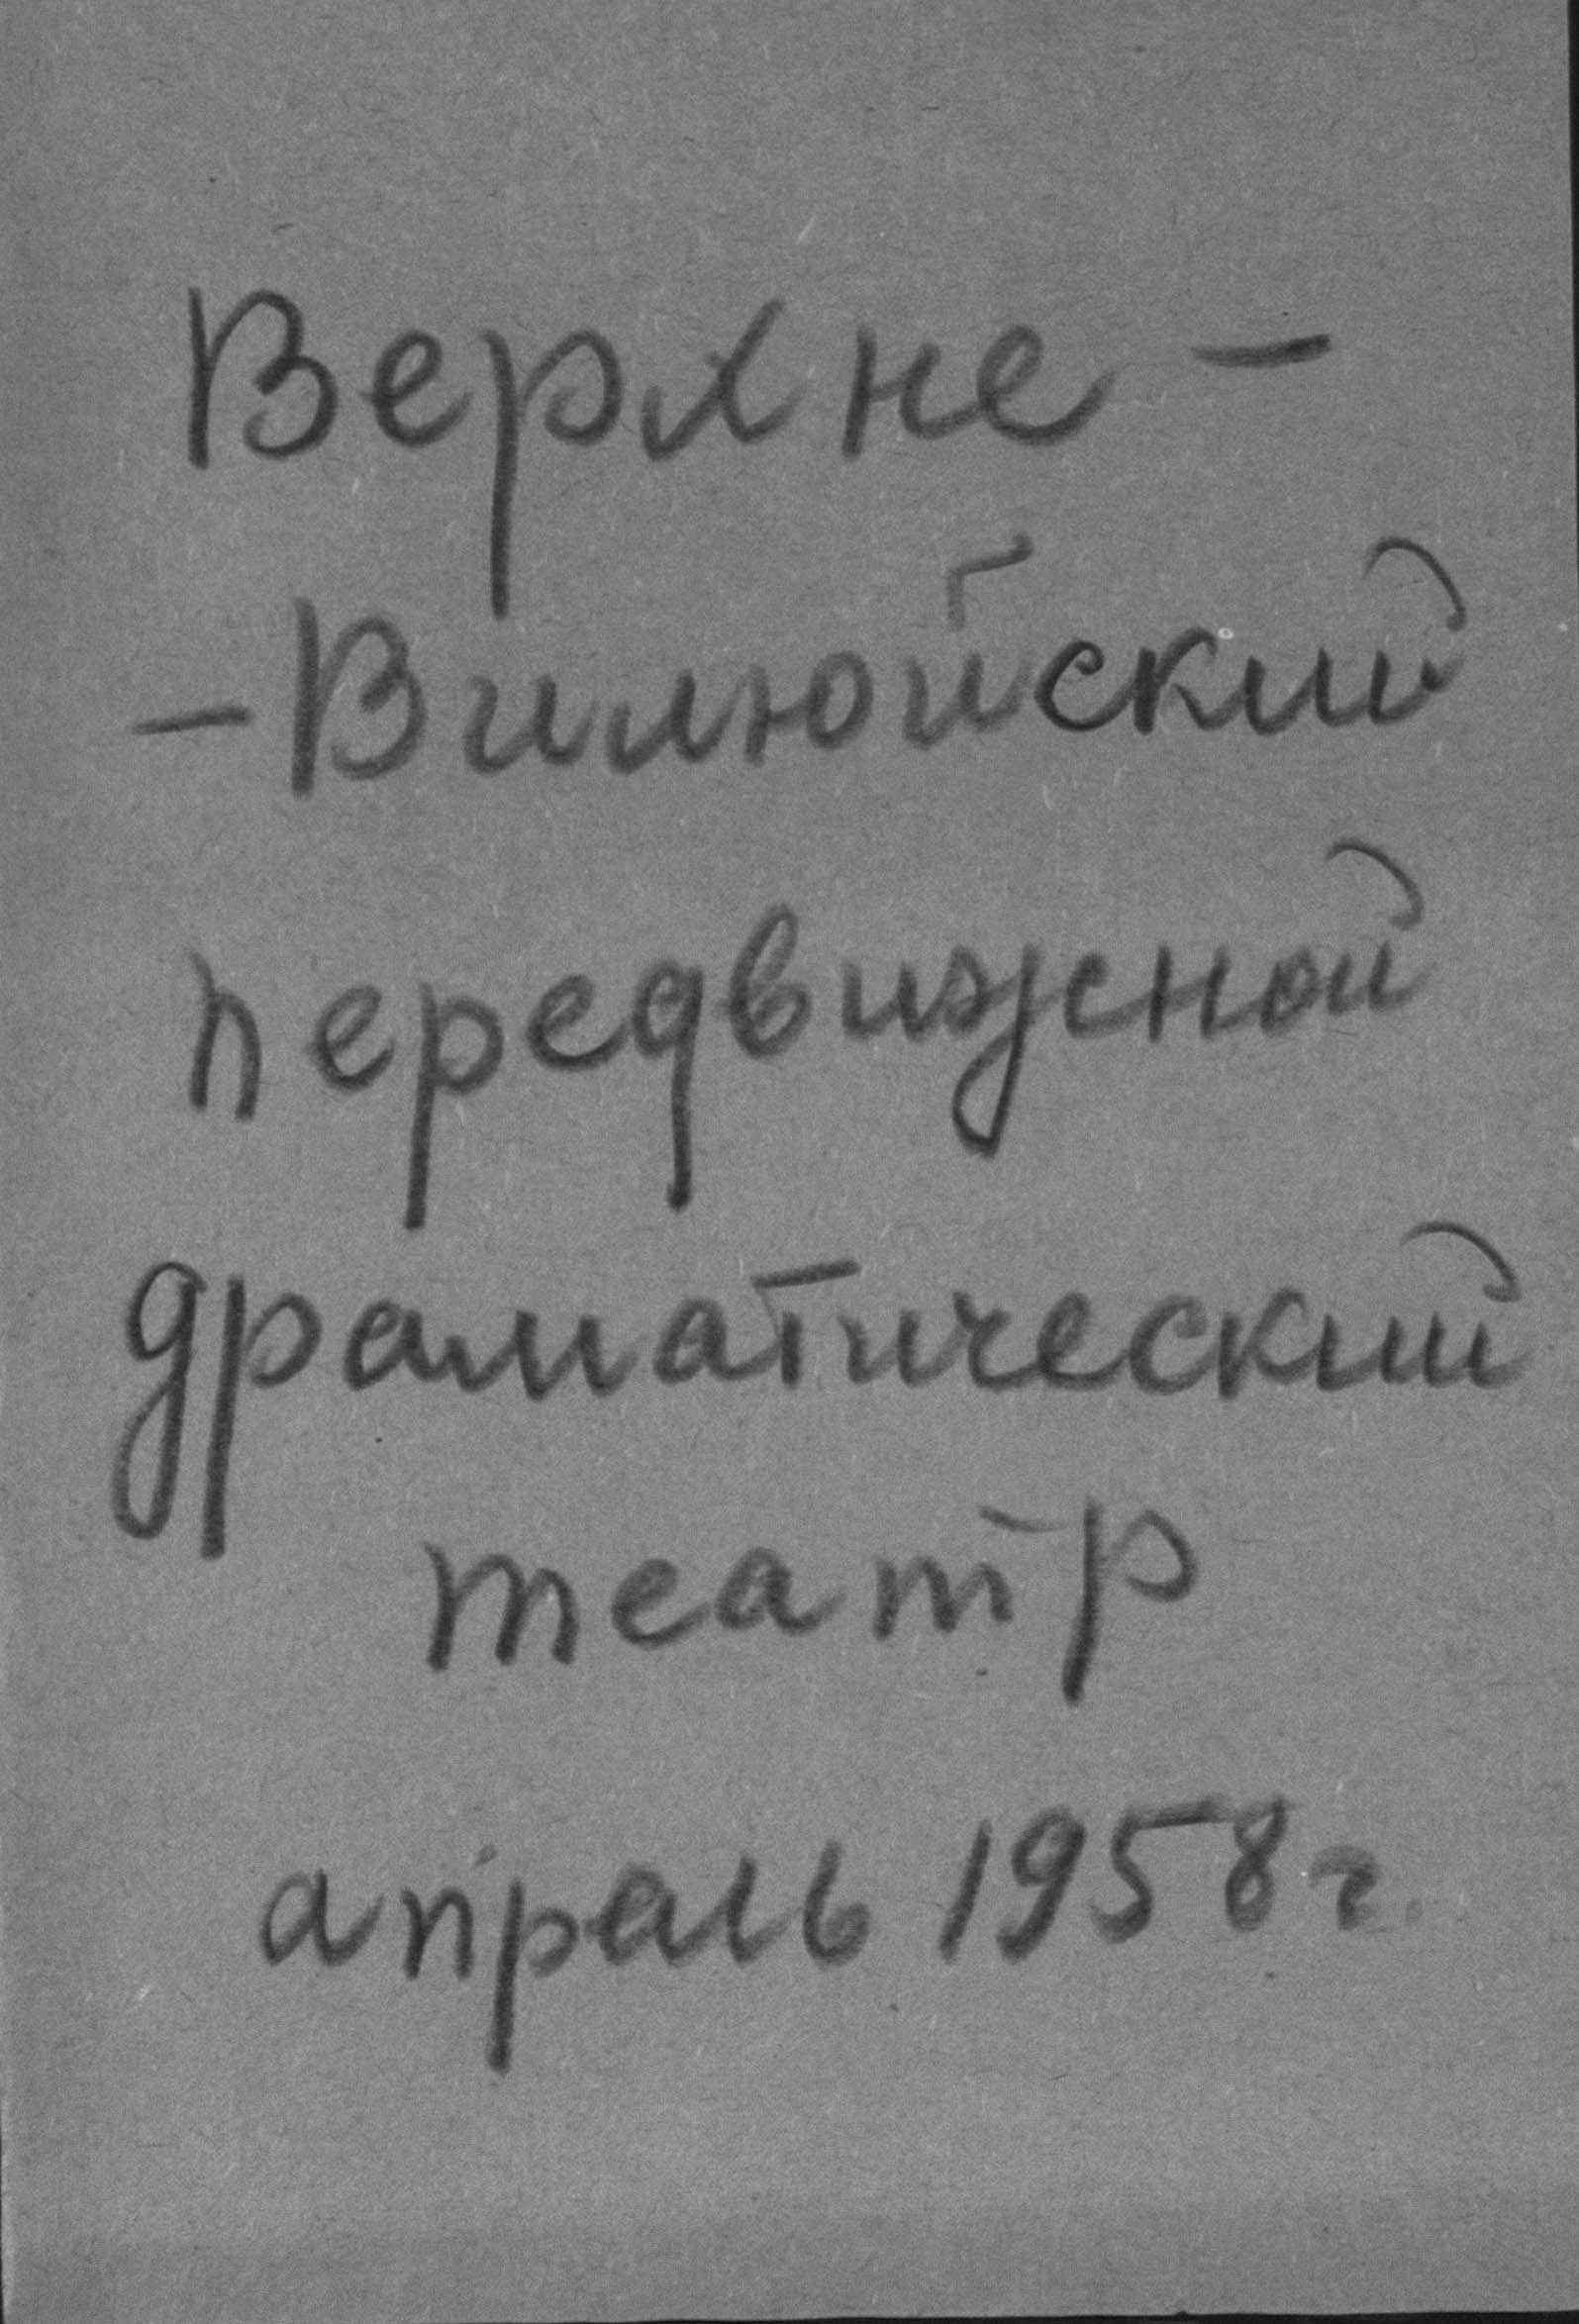 Верхне -
- Вилюйский
передвижной
драматический
театр
апрель 1958 г.